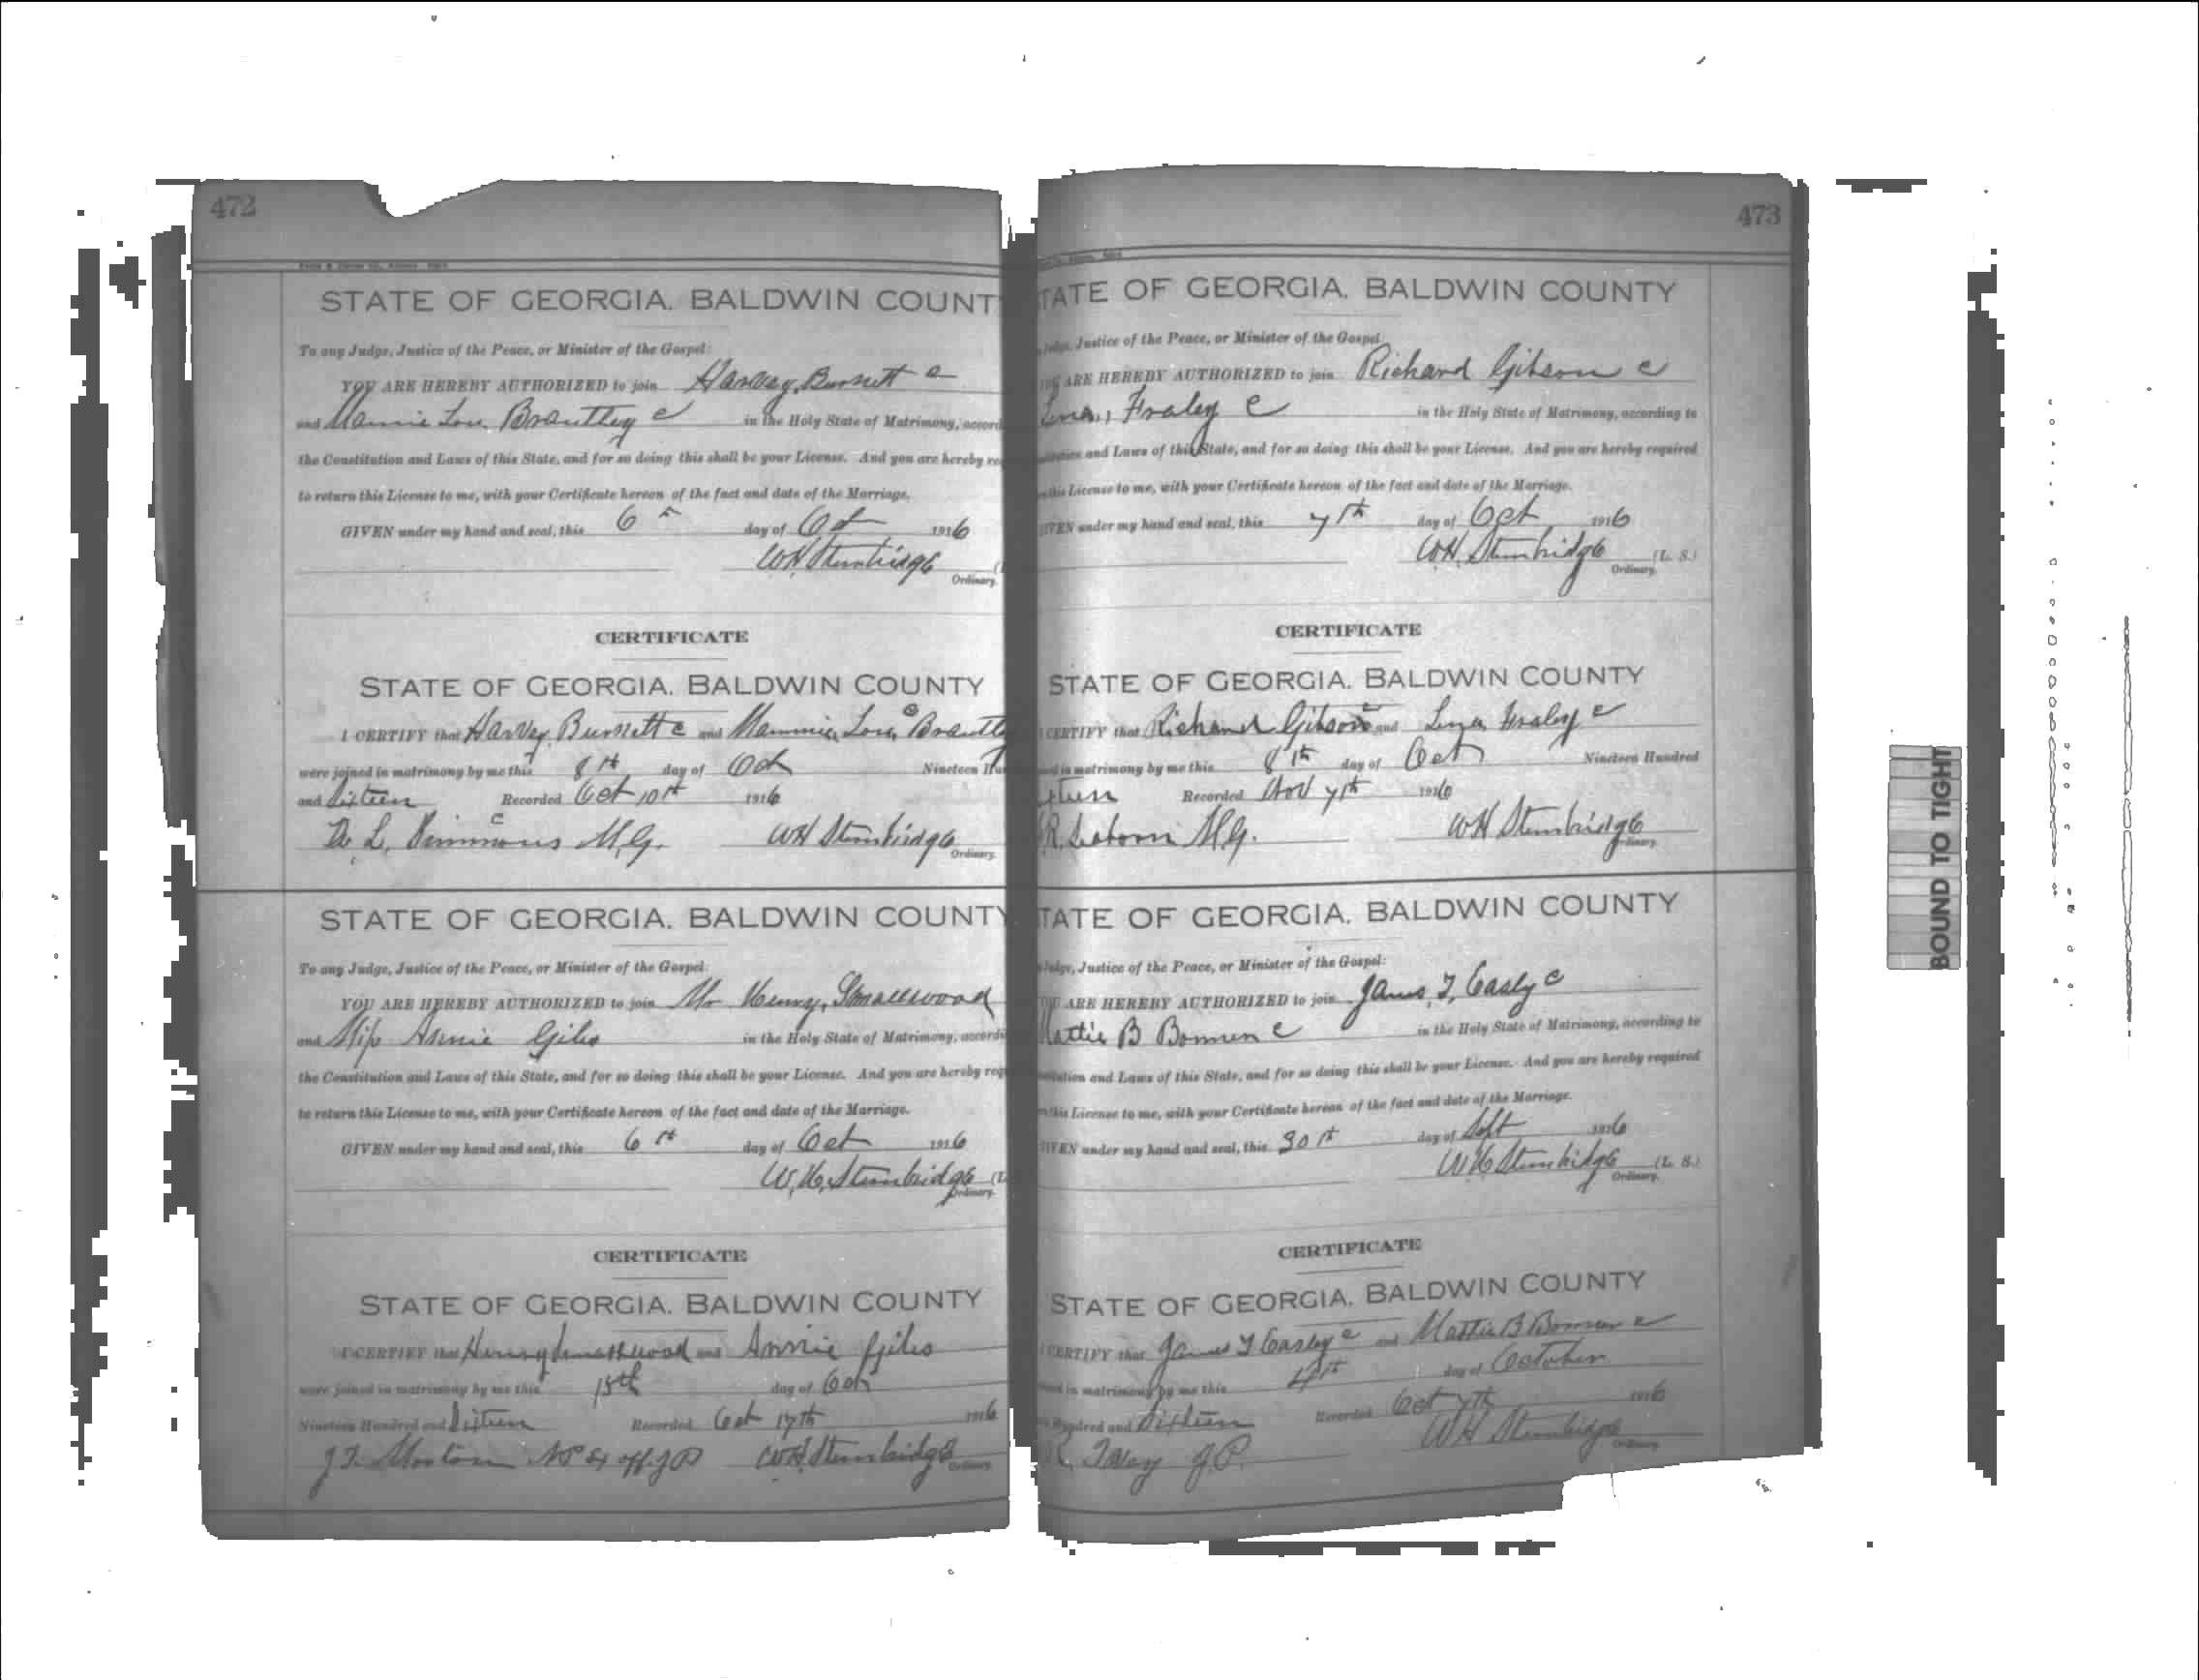 472
STATE OF GEORGIA. BALDWIN COUNT
To any Judge, Justice of the Peace, or Minister of the Gospel:
YOU ARE HEREBY AUTHORIZED to join Harvey Burnett c
and Mamie Lou Brantley c in the Holy State of Matrimony, accord
the Constitution and Laws of this State, and for so doing this shall be your License. And you are hereby re
to return this License to me, with your Certificate hereon of the fact and date of the Marriage.
GIVEN under my hand and seal, this 6 day of Oct 1916
WH Stembridge
Ordinary.
CERTIFICATE
STATE OF GEORGIA. BALDWIN COUNTY
I CERTIFY that Harvey Burnett c and Mammie Lou c Brantle
were joined in matrimony by me this 8th day of Oct Nineteen Hun
and Sixteen Recorded Oct 10th 1916
L. Simmons c M.G. WH Stembridge
Ordinary.
STATE OF GEORGIA. BALDWIN COUNTY
To any Judge, Justice of the Peace, or Minister of the Gospel:
YOU ARE HEREBY AUTHORIZED to join Mr Henry Smallwood
and Miss Annie Giles in the Holy State of Matrimony, accordi
the Constitution and Laws of this State, and for so doing this shall be your License. And you are hereby req
to return this License to me, with your Certificate hereon of the fact and date of the Marriage.
GIVEN under my hand and seal, this 6th day of Oct 1916
W.H. Stembridge (L
Ordinary.
CERTIFICATE
STATE OF GEORGIA. BALDWIN COUNTY
I CERTIFY that Henry Smallwood and Annie Giles
were joined in matrimony by me this 15th day of Oct
Nineteen Hundred and Sixteen Recorded Oct 17th 1916
J.T. NP Ex off. JP WH Stembridge
Ordinary.
473
TATE OF GEORGIA. BALDWIN COUNTY
Judge, Justice of the Peace, or Minister of the Gospel:
YOU ARE HEREBY AUTHORIZED to join Richard Gibson c
Fraley c in the Holy State of Matrimony, according to
and Laws of this State, and for so doing this shall be your License. And you are hereby required
this License to me, with your Certificate hereon of the fact and date of the Marriage.
GIVEN under my hand and seal, this 7th day of Oct 1916
W.H. Stembridge (L. S.)
Ordinary.
CERTIFICATE
STATE OF GEORGIA. BALDWIN COUNTY
I CERTIFY that Richard Gibson c and Fraley c
in matrimony by me this 8th day of Oct Nineteen Hundred
Recorded Nov 7th 1916
M.G. WH Stembridge
Ordinary.
TATE OF GEORGIA. BALDWIN COUNTY
Judge, Justice of the Peace, or Minister of the Gospel:
ARE HEREBY AUTHORIZED to join James T. Easly c
Mattie B c in the Holy State of Matrimony, according to
and Laws of this State, and for so doing this shall be your License. And you are hereby required
this License to me, with your Certificate hereon of the fact and date of the Marriage.
GIVEN under my hand and seal, this 30th day of Sept 1916
W.H. Stembridge (L. S.)
Ordinary.
CERTIFICATE
STATE OF GEORGIA. BALDWIN COUNTY
I CERTIFY that James T Easley c and Mattie B c
in matrimony by me this 4th day of October
Hundred and Sixteen Recorded Oct 7th 1916
J.P. WH Stembridge
Ordinary.
BOUND TO TIGHT